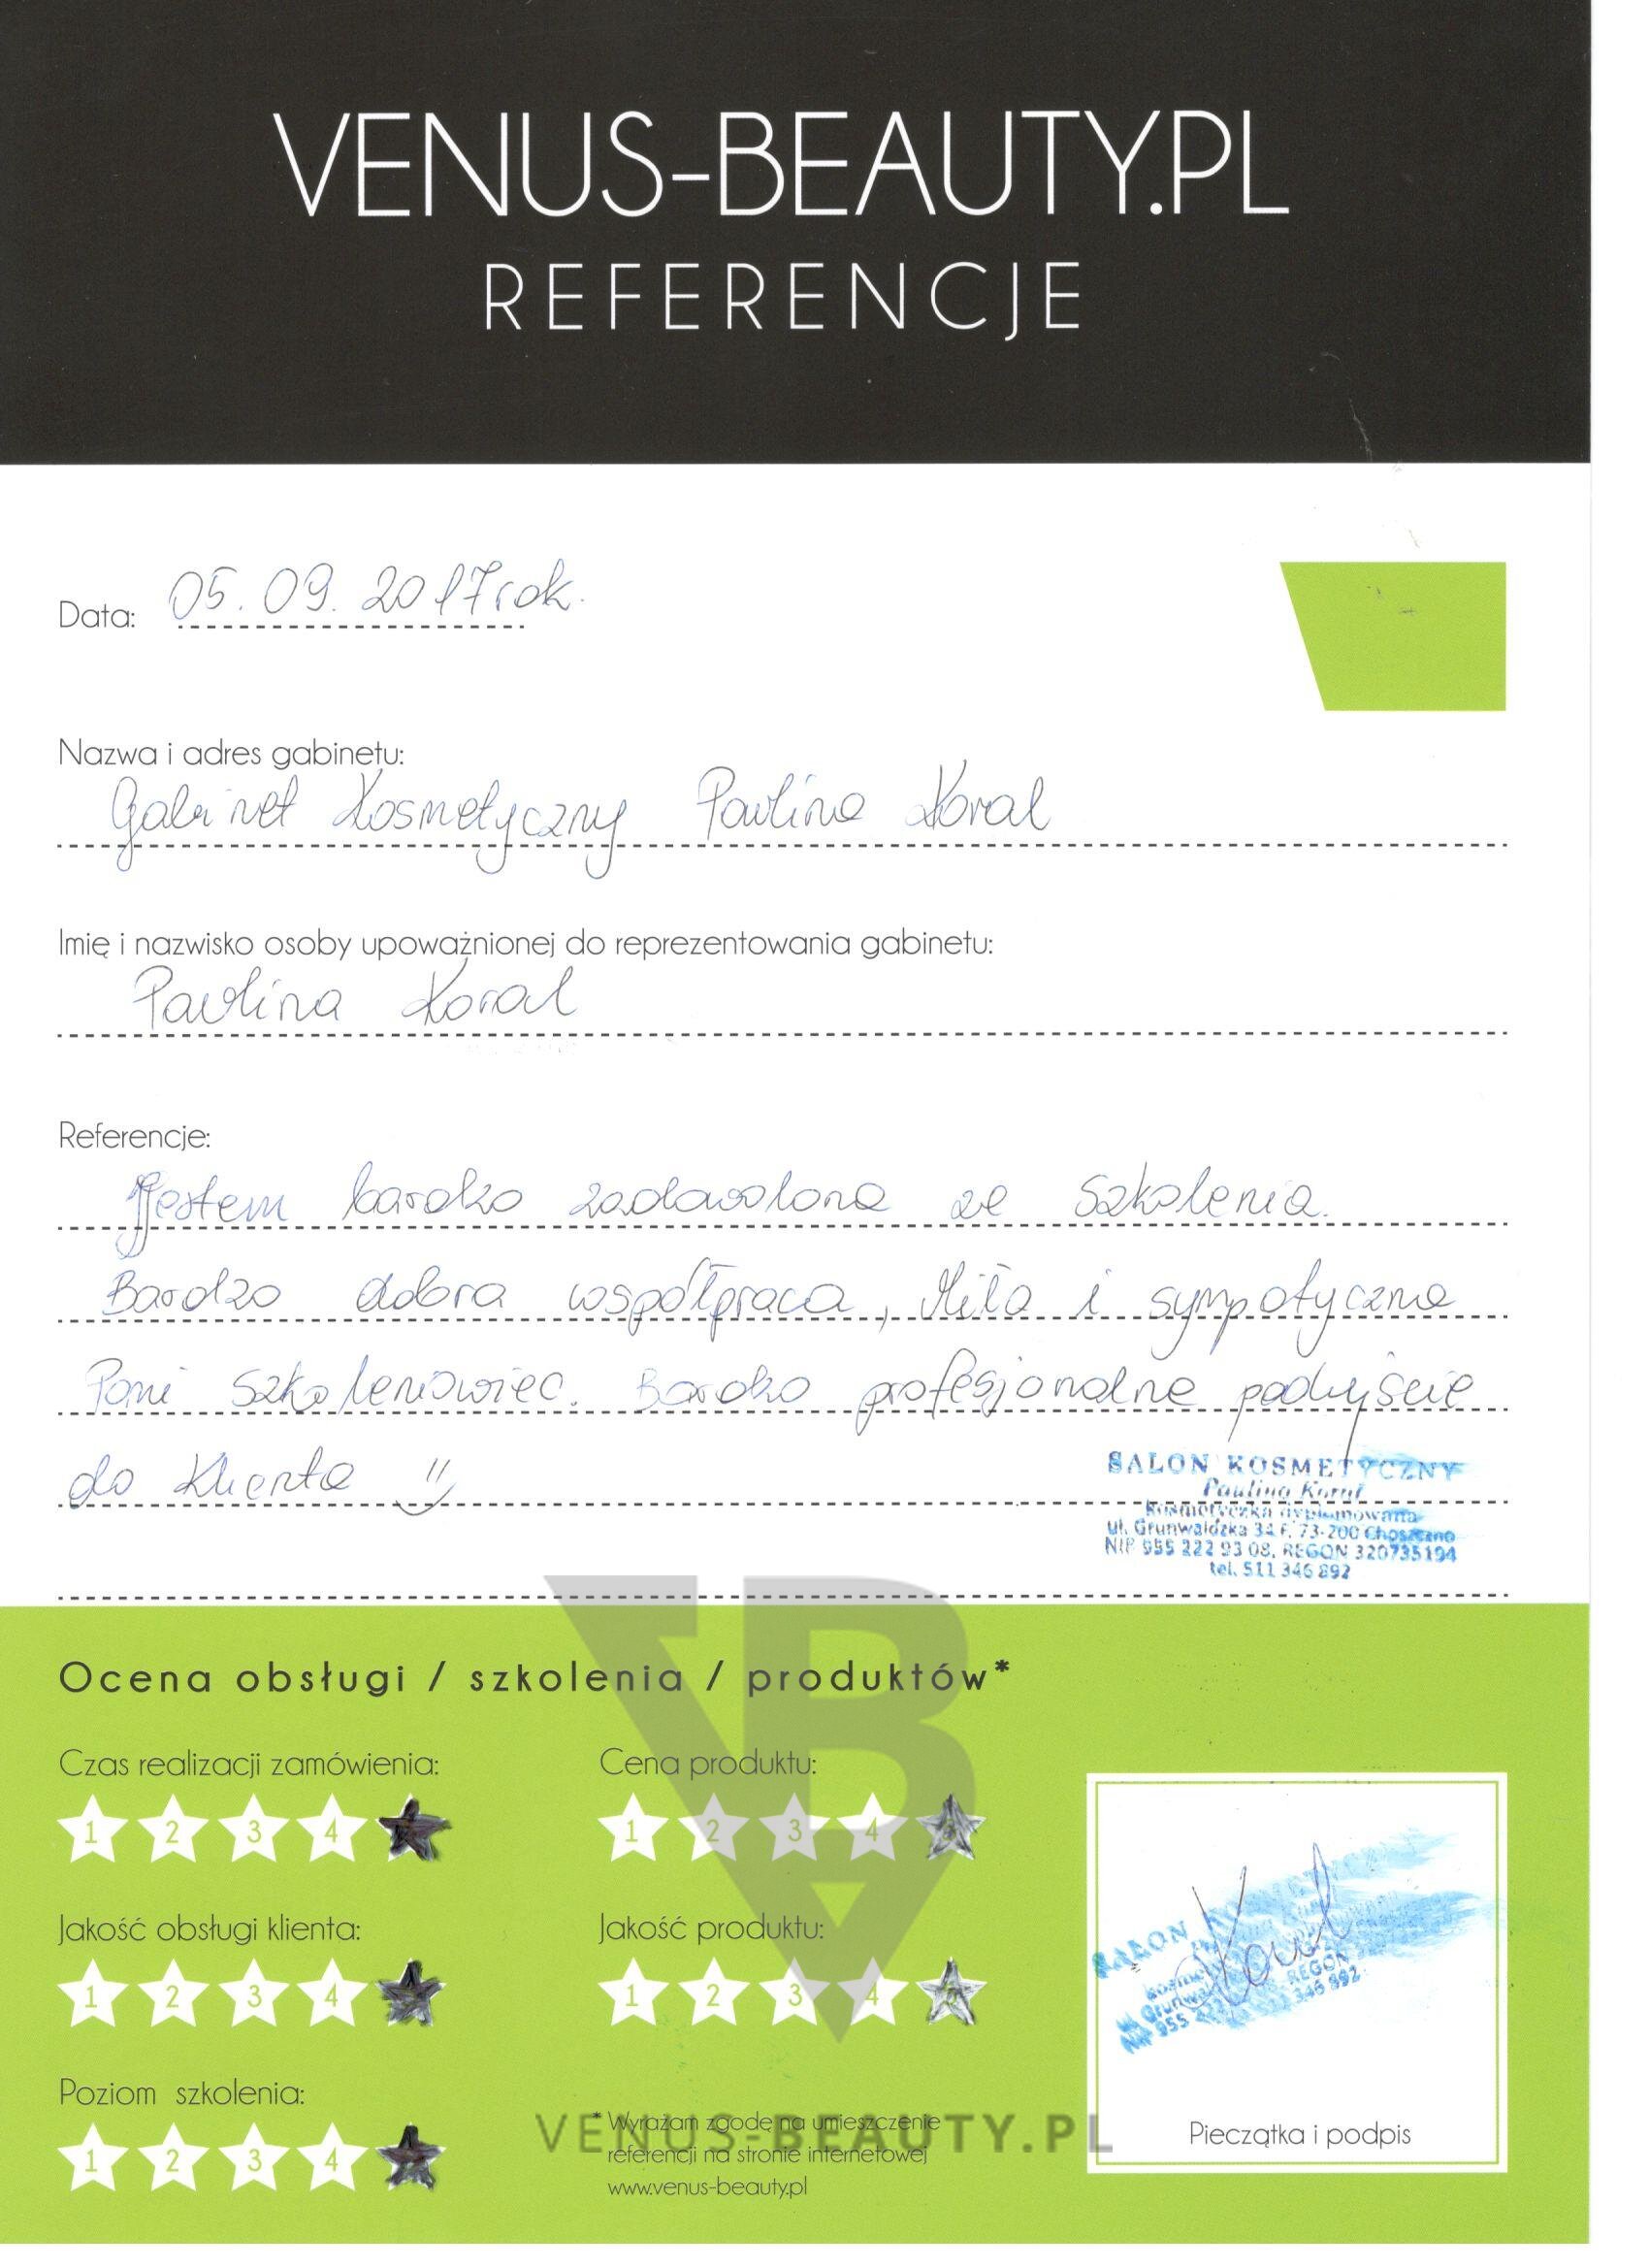 VENUS-BEAUTY.PL
REFERENCJE
Data: 05.09.2017 rok.
Nazwa i adres gabinetu:
Gabinet Kosmetyczny Paulina Koral
Imię i nazwisko osoby upoważnionej do reprezentowania gabinetu:
Paulina Koral
Referencje:
Jestem bardzo zadowolona ze szkolenia.
Bardzo dobra współpraca, Miła i sympatyczna
Pani Szkoleniowiec. Bardzo profesjonalne podejście
do Klienta
SALON KOSMETYCZNY
Paulina Koral
Kosmetyczka dyplomowana
ul. Grunwaldzka 34 F, 73-200 Choszczno
NIP 955 222 93 08, REGON 320735194
tel. 511 346 892
Ocena obsługi / szkolenia / produktów*
Czas realizacji zamówienia:
1 2 3 4
Cena produktu:
1 2 3 4
Jakość obsługi klienta:
1 2 3 4
Jakość produktu:
1 2 3 4
Poziom szkolenia:
1 2 3 4
* Wyrażam zgodę na umieszczenie
referencji na stronie internetowej
www.venus-beauty.pl
VENUS-BEAUTY.PL
SALON
Koral
REGON
346 892
Pieczątka i podpis